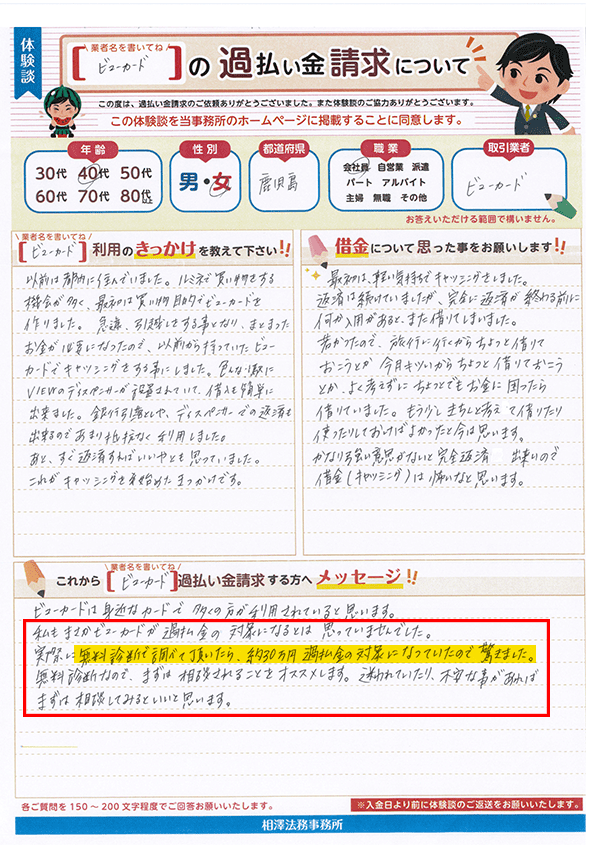 体験談
業者名を書いてね
[ビューカード]の過払い金請求について
この度は、過払い金請求のご依頼ありがとうございました。また体験談のご協力ありがとうございます。
この体験談を当事務所のホームページに掲載することに同意します。
年齢
30代 40代 50代
60代 70代 80代以上
性別
男・女
都道府県
鹿児島
職業
会社員 自営業 派遣
パート アルバイト
主婦 無職 その他
取引業者
ビューカード
お答えいただける範囲で構いません。
業者名を書いてね
[ビューカード]利用のきっかけを教えて下さい!!
以前は都内に住んでいました。ルミネで買い物をする
機会が多く、最初は買い物目的でビューカードを
作りました。急遽、引越しをする事となり、まとまった
お金が必要になったので、以前から持っていたビュー
カードでキャッシングをする事にしました。色んな駅に
VIEWのディスペンサーが設置されていて、借入も簡単に
出来ました。銀行引落としや、ディスペンサーでの返済も
出来るのであまり抵抗なく利用しました。
あと、すぐ返済すればいいやとも思っていました。
これがキャッシングを始めたきっかけです。
借金について思った事をお願いします!!
最初は、軽い気持ちでキャッシングをしました。
返済は続けていましたが、完全に返済が終わる前に
何か入用があると、また借りてしまいました。
若かったので、旅行に行くからちょっと借りて
おこうとか 今月キツいからちょっと借りておこう
とか、よく考えずにちょっとでもお金に困ったら
借りていました。もう少しきちんと考えて借りたり
使ったりしておけばよかったと今は思います。
かなり強い意思がないと完全返済 出来いので
借金(キャッシング)は怖いなと思います。
業者名を書いてね
これから[ビューカード]過払い金請求する方へメッセージ!!
ビューカードは身近なカードで多くの方が利用されていると思います。
私もまさかビューカードが過払金の対象になるとは思っていませんでした。
実際に無料診断で調べて頂いたら、約30万円過払金の対象になっていたので驚きました。
無料診断なので、まずは相談されることをオススメします。迷われていたり、不安な事があれば
まずは相談してみるといいと思います。
各ご質問を150～200文字程度でご回答お願いいたします。
※入金日より前に体験談のご返送をお願いいたします。
相澤法務事務所